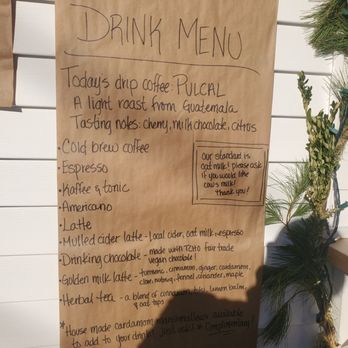 DRINK MENU
Today's drip coffee: PULCAL
A light roast from Guatemala
Tasting notes: cherry, milk chocolate, citrus
• Cold brew coffee
• Espresso
• Kaffee & tonic
• Americano
• Latte
• Mulled cider latte - local cider, oat milk, espresso
• Drinking chocolate - made with TCHO fair trade
vegan chocolate!
• Golden milk latte - turmeric, cinnamon, ginger, cardamom,
clove, nutmeg, fennel, coriander, maple
• Herbal tea - a blend of cinnamon, tulsi, lemon balm,
& oat tops
* House made cardamom marshmallows available
to add to your drink! Just ask! * Complimentary!
our standard is
oat milk! please ask
if you would like
cow's milk!
thank you!